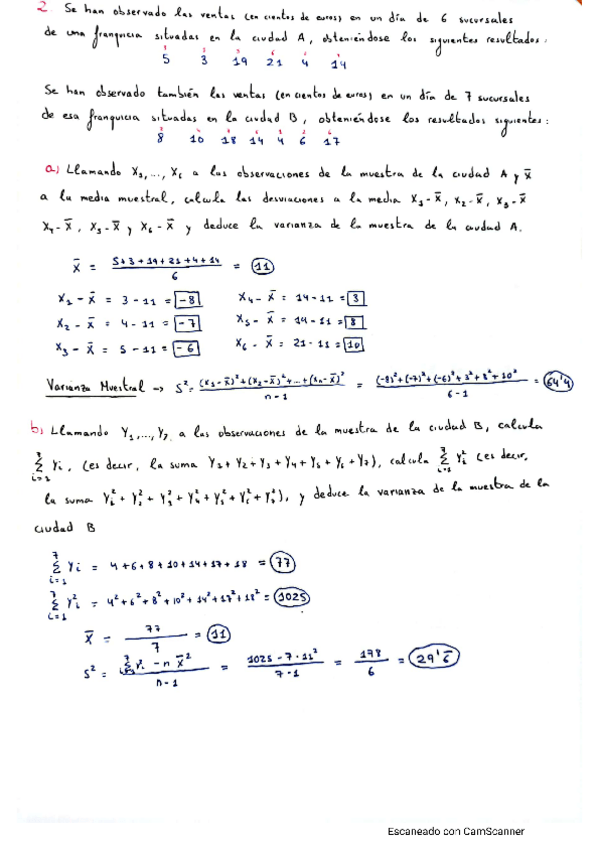 2 Se han observado las ventas (en cientos de euros) en un día de 6 sucursales
de una franquicia situadas en la ciudad A, obteniéndose los siguientes resultados:
5 3 19 21 4 14
Se han observado también las ventas (en cientos de euros) en un día de 7 sucursales
de esa franquicia situadas en la ciudad B, obteniéndose los resultados siguientes:
8 10 18 14 4 6 17
a) Llamando X₁,..., X₆ a las observaciones de la muestra de la ciudad A y x̄
a la media muestral, calcula las desviaciones a la media X₁-x̄, X₂-x̄, X₃-x̄
X₄-x̄, X₅-x̄ y X₆-x̄ y deduce la varianza de la muestra de la ciudad A.
x̄ = (5+3+19+21+4+14)/6 = 11
X₁ - x̄ = 3 - 11 = -8 X₄ - x̄ = 14 - 11 = 3
X₂ - x̄ = 4 - 11 = -7 X₅ - x̄ = 19 - 11 = 8
X₃ - x̄ = 5 - 11 = -6 X₆ - x̄ = 21 - 11 = 10
Varianza Muestral → S² = ((X₁-x̄)²+(X₂-x̄)²+...+(Xn-x̄)²)/(n-1) = ((-8)²+(-7)²+(-6)²+3²+8²+10²)/(6-1) = 64'4
b) Llamando Y₁,..., Y₇ a las observaciones de la muestra de la ciudad B, calcula
Σ⁷ᵢ₌₁ Yi, (es decir, la suma Y₁+Y₂+Y₃+Y₄+Y₅+Y₆+Y₇), calcula Σ⁷ᵢ₌₁ Yi² (es decir,
la suma Y₁²+Y₂²+Y₃²+Y₄²+Y₅²+Y₆²+Y₇²), y deduce la varianza de la muestra de la
ciudad B
Σ⁷ᵢ₌₁ Yi = 4+6+8+10+14+17+18 = 77
Σ⁷ᵢ₌₁ Yi² = 4²+6²+8²+10²+14²+17²+18² = 1025
x̄ = 77/7 = 11
S² = (Σ Yi² - n x̄²)/(n-1) = (1025 - 7·11²)/(7-1) = 178/6 = 29'6̄
Escaneado con CamScanner